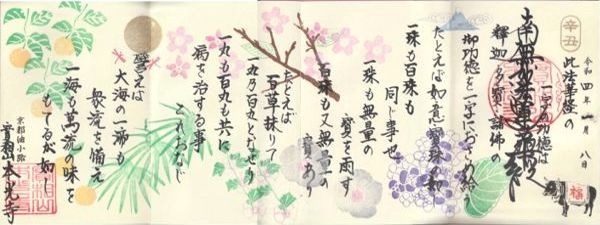 辛丑
令和四年一月八日
南無妙法蓮華経
此法華経の
一字の功徳は
釈迦多宝諸佛の
御功徳を一字におさめ給う
たとえば如意宝珠の如
一珠も百珠も
同じ事也
一珠も無量の
宝を雨す
百珠も又無量の
宝あり
たとえば
百草抹りて
一丸乃百丸となせり
一丸も百丸も共に
病を治する事
これおなじ
譬えば
大海の一渧も
衆流を備え
一海も萬流の味を
もてるが如し
京都油小路
実相山本光寺
福